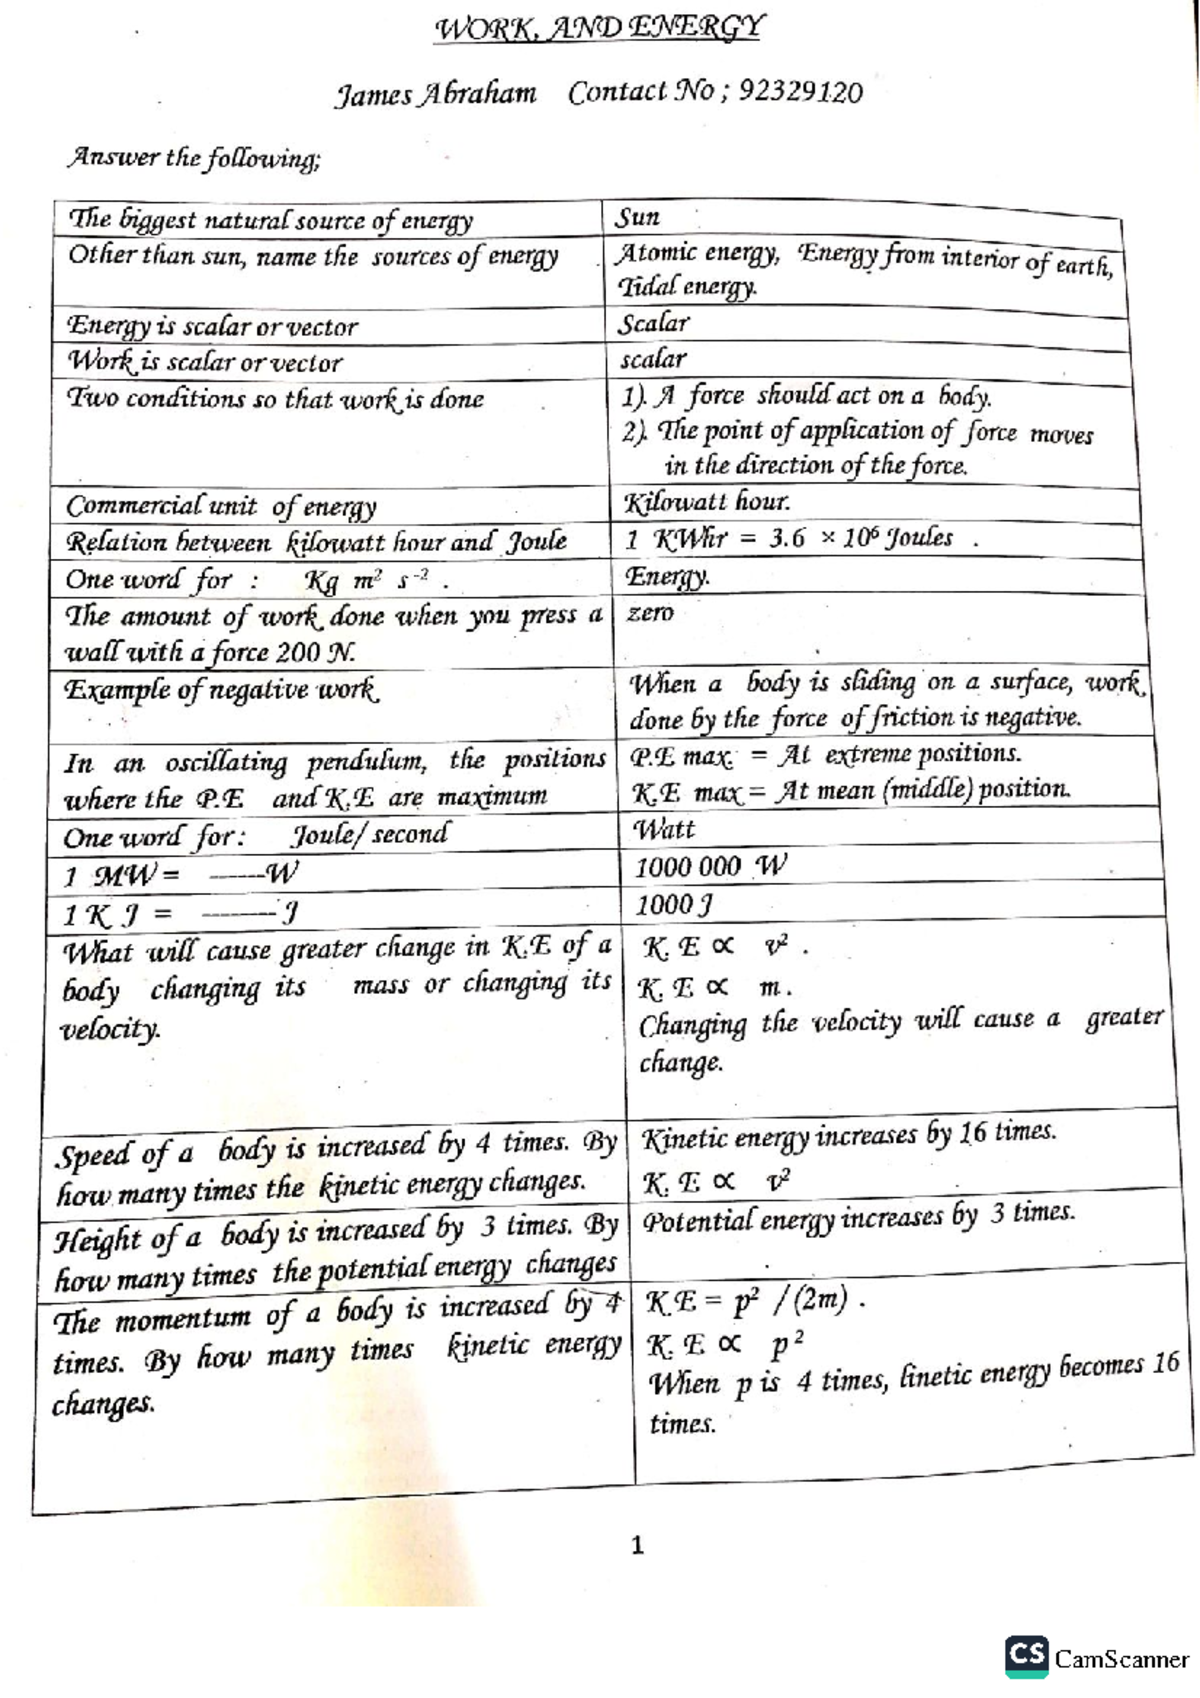 WORK, AND ENERGY
James Abraham Contact No ; 92329120
Answer the following;
The biggest natural source of energy
Sun
Other than sun, name the sources of energy
Atomic energy, Energy from interior of earth,
Tidal energy.
Energy is scalar or vector
Scalar
Work is scalar or vector
scalar
Two conditions so that work is done
1). A force should act on a body.
2). The point of application of force moves
in the direction of the force.
Commercial unit of energy
Kilowatt hour.
Relation between kilowatt hour and Joule
1 KWhr = 3.6 × 10⁶ Joules .
One word for : Kg m² s⁻² .
Energy.
The amount of work done when you press a
wall with a force 200 N.
zero
Example of negative work
When a body is sliding on a surface, work
done by the force of friction is negative.
In an oscillating pendulum, the positions
where the P.E and K.E are maximum
P.E max. = At extreme positions.
K.E max = At mean (middle) position.
One word for: Joule/ second
Watt
1 MW = ------W
1000 000 W
1 K J = -------- J
1000 J
What will cause greater change in K.E of a
body changing its mass or changing its
velocity.
K. E ∝ v² .
K. E ∝ m .
Changing the velocity will cause a greater
change.
Speed of a body is increased by 4 times. By
how many times the kinetic energy changes.
Kinetic energy increases by 16 times.
K. E ∝ v²
Height of a body is increased by 3 times. By
how many times the potential energy changes
Potential energy increases by 3 times.
The momentum of a body is increased by 4
times. By how many times kinetic energy
changes.
K.E = p² / (2m) .
K. E ∝ p²
When p is 4 times, linetic energy becomes 16
times.
1
CS CamScanner